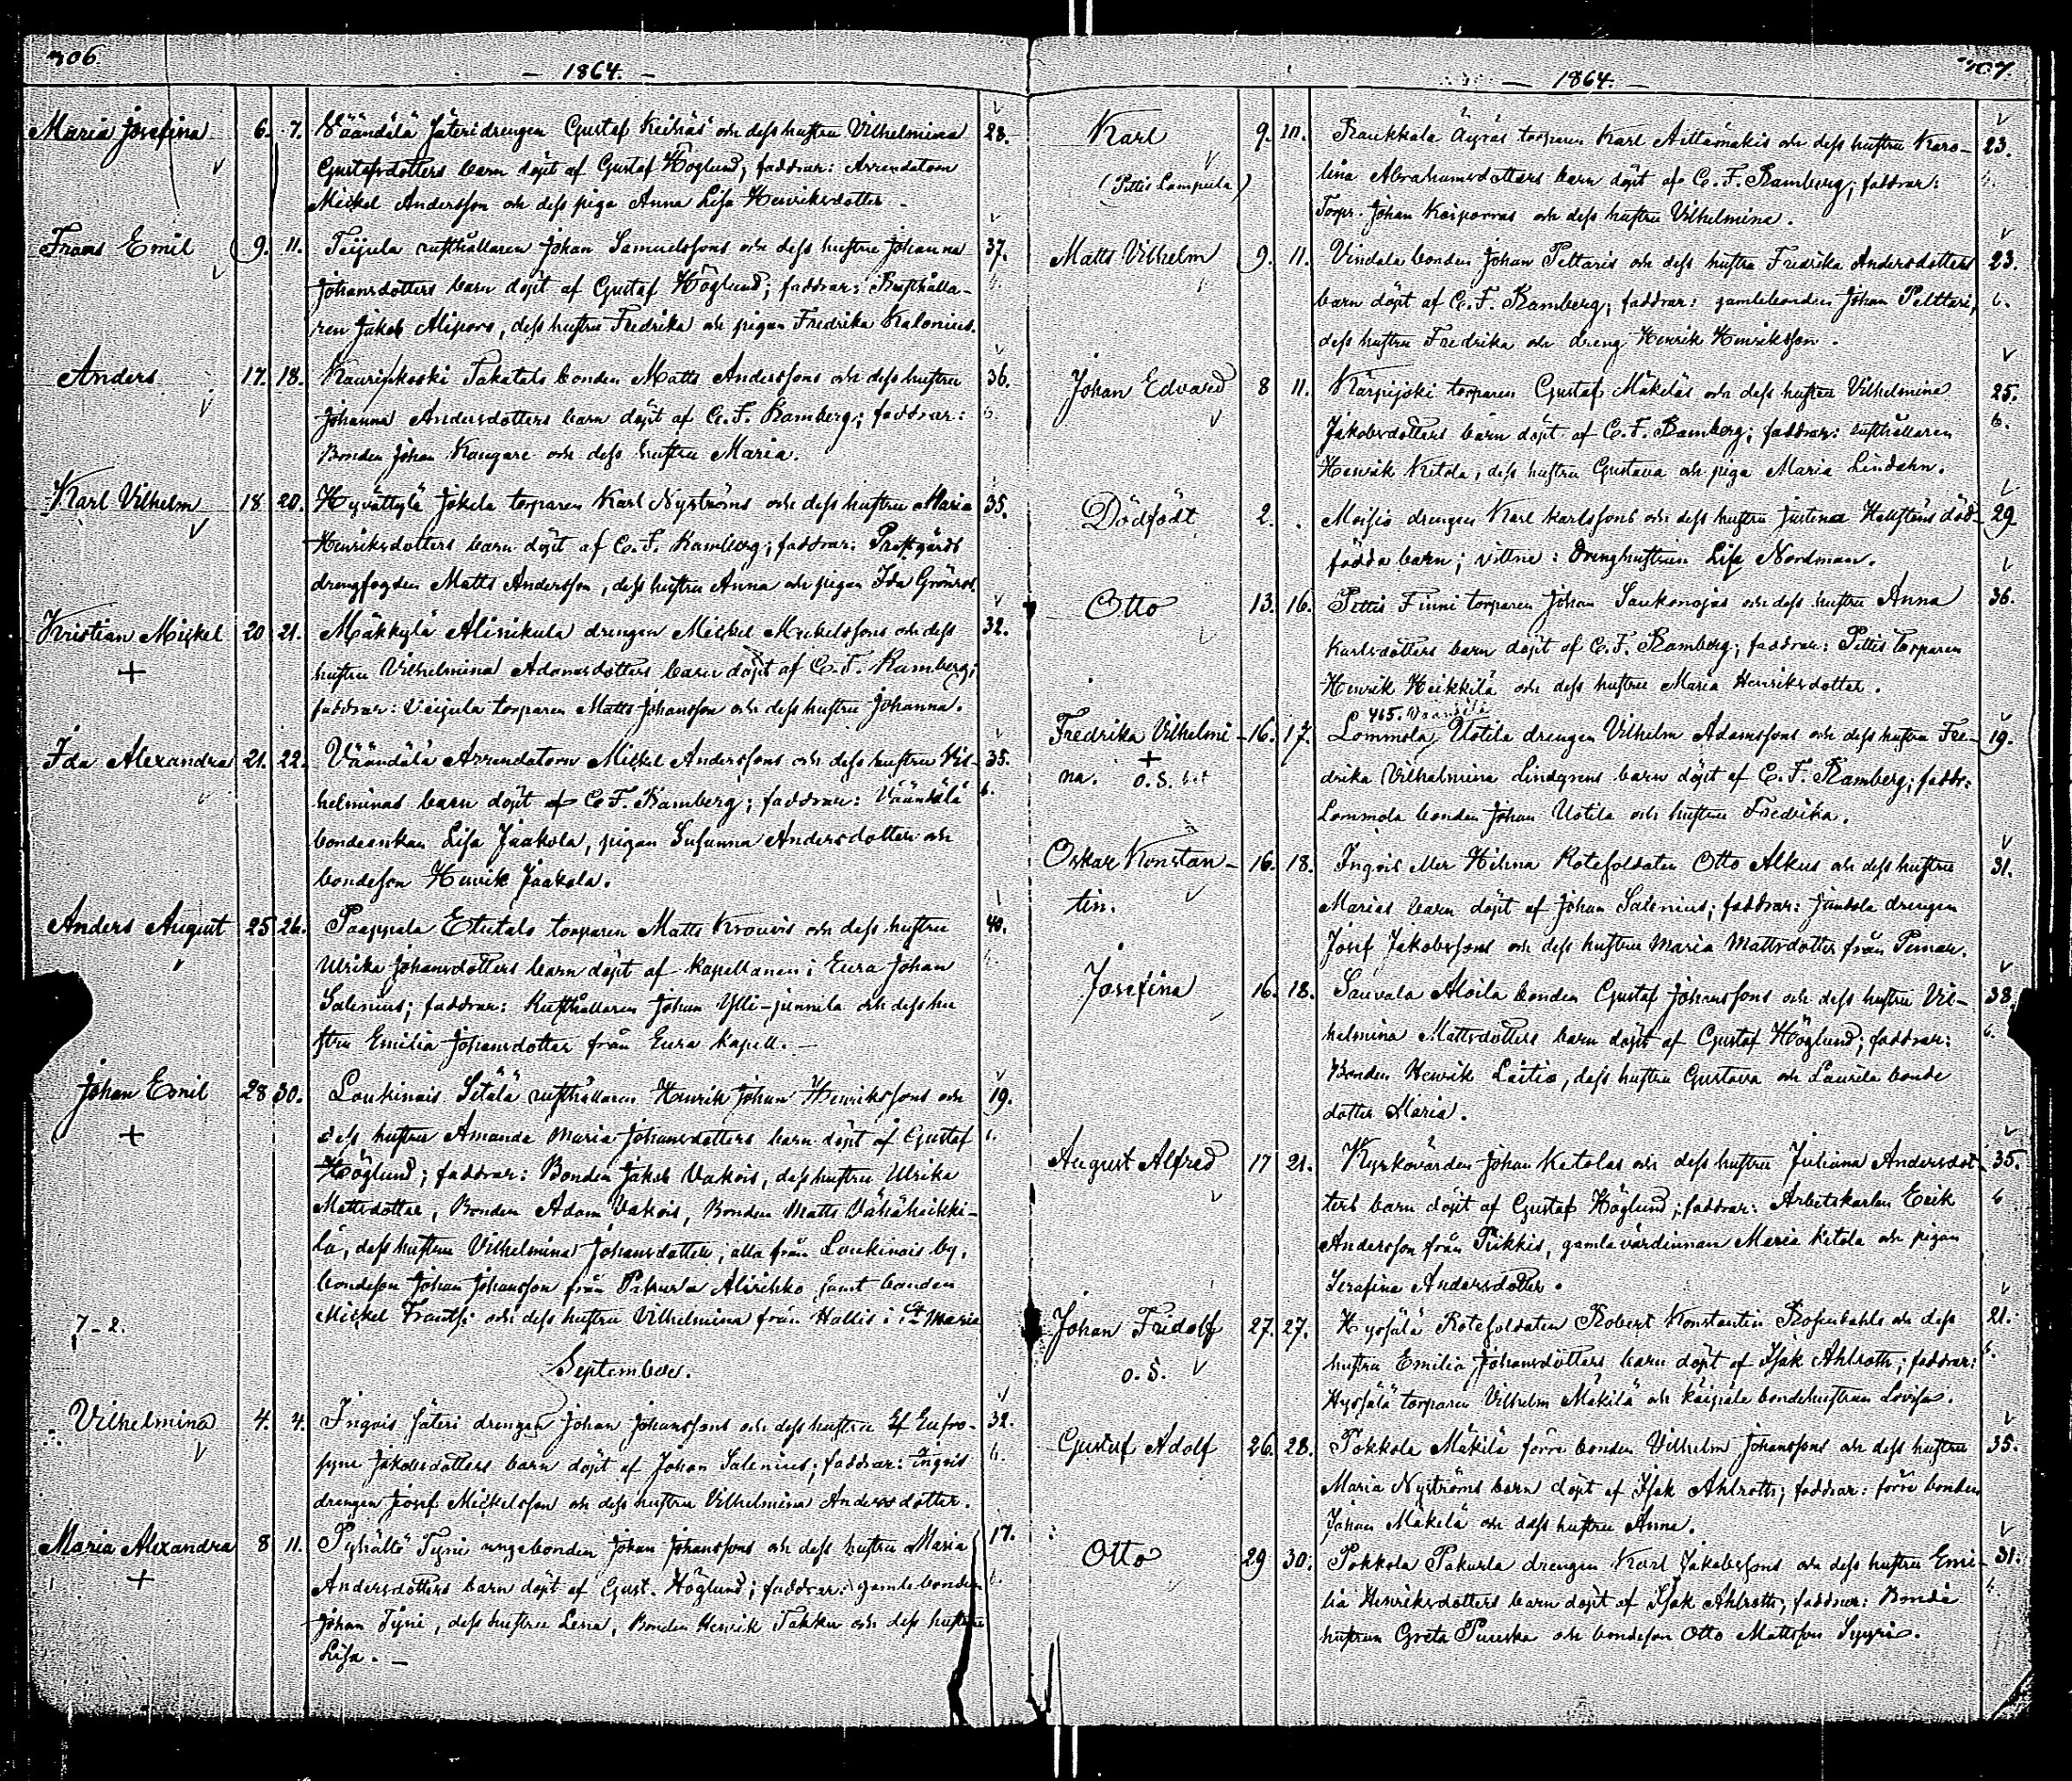 306.
— 1864. —
Maria Josefina 6. 7. Väändälä Säteri drengen Gustaf Keihäs och dess hustru Vilhelmina 28.
Gustafsdotters barn döpt af Gustaf Höglund; faddrar: Arrendatorn
Mickel Andersson och dess piga Anna Lisa Henriksdotter
Frans Emil 9. 11. Teijula rusthållaren Johan Samuelssons och dess hustru Johanna 37.
Johansdotters barn döpt af Gustaf Höglund; faddrar: Rusthålla-
ren Jakob Aliporo, dess hustru Fredrika och pigan Fredrika Kalonius.
Anders 17. 18. Kaurinkoski Takatalo bonden Matts Anderssons och dess hustru 36.
Johanna Andersdotters barn döpt af C. F. Bamberg; faddrar: 6.
Bonden Johan Kangare och dess hustru Maria.
Karl Vilhelm 18 20. Hyvättylä Jokela torparen Karl Nyströms och dess hustru Maria 35.
Henriksdotters barn döpt af C. F. Bamberg; faddrar: Prostgårds
drengfogden Matts Andersson, dess hustru Anna och pigan Ida Grönroos.
Kristian Mickel 20 21. Mäkkylä Alinikula drengen Mickel Mickelssons och dess 32.
+ hustru Vilhelmina Adamsdotters barn döpt af C. F. Bamberg;
faddrar: Veijula torparen Matts Johansson och dess hustru Johanna.
Ida Alexandra 21. 22. Väändälä Arrendatorn Mickel Anderssons och dess hustru Vil- 35.
helminas barn döpt af C. F. Bamberg; faddrar: Väändälä 6.
bondeenkan Lisa Jaakola, pigan Susanna Andersdotter och
bondeson Henrik Jaakola.
Anders August 25 26. Paappala Etutalo torparen Matts Krouvis och dess hustru 40.
Ulrika Johansdotters barn döpt af Kapellanen i Eura Johan
Salenius; faddrar: Rusthållaren Johan Ylli-junnila och dess hu
stru Emilia Johansdotter från Eura Kapell. —
Johan Emil 28 30. Loukinais Sitälä rusthållaren Henrik Johan Henrikssons och 19.
+ dess hustru Amanda Maria Johansdotters barn döpt af Gustaf 6.
Höglund; faddrar: Bonden Jakob Vakois, dess hustru Ulrika
Mattsdotter, Bonden Adam Vakois, Bonden Matts Vähäheikki-
lä, dess hustru Vilhelmina Johansdotter, alla från Loukinais by,
bondeson Johan Johansson från Pakurla Alisihko samt bonden
7-2. Mickel Frantsi och dess hustru Vilhelmina från Hallis i S:t Maria
September.
Vilhelmina 4. 4. Ingois Säteri drengen Johan Johanssons och dess hustru Eufro- 32.
syne Jakobsdotters barn döpt af Johan Salenius; faddrar: Ingois 6.
drengen Josef Mickelsson och dess hustru Vilhelmina Andersdotter.
Maria Alexandra 8 11. Pyhältö Tyni ungebonden Johan Johanssons och dess hustru Maria 17.
+ Andersdotters barn döpt af Gust. Höglund; faddrar: gamle bonden
Johan Tyni, dess hustru Lena, Bonden Henrik Takku och dess hustru
Lisa. —
307.
— 1864. —
Karl 9. 10. Raukkala Äyräs torparen Karl Aittamäkis och dess hustru Karo- 23.
(Pettis Lampula) lina Abrahamsdotters barn döpt af C. F. Bamberg; faddrar:
Torpr. Johan Koiporras och dess hustru Vilhelmina.
Matts Vilhelm 9. 11. Vindala bonden Johan Peltaris och dess hustru Fredrika Andersdotters 23.
barn döpt af C. F. Bamberg; faddrar: gamlebonden Johan Pelttari, 6.
dess hustru Fredrika och dreng Henrik Henriksson.
Johan Edvard 8 11. Karpijoki torparen Gustaf Mäkiläs och dess hustru Vilhelmina 25.
Jakobsdotters barn döpt af C. F. Bamberg; faddrar: rusthållaren 6.
Henrik Ketola, dess hustru Gustava och piga Maria Lindahn.
Dödfödt 2. . Moisio drengen Karl Karlssons och dess hustru Justina Hellstens död- 29
födda barn; vittne: Drenghustrun Lisa Nordman.
Otto 13. 16. Pettis Finni torparen Johan Saukonojas och dess hustru Anna 36.
Karlsdotters barn döpt af C. F. Bamberg; faddrar: Pettis torparen
Henrik Heikkilä och dess hustru Maria Henriksdotter.
465. Väänälä
Fredrika Vilhelmi- 16. 17. Lommola Uotila drengen Vilhelm Adamssons och dess hustru Fre- 19.
na. + o. S. drika Vilhelmina Lindgrens barn döpt af C. F. Bamberg; faddr:
Lommola bonden Johan Uotila och hustru Fredrika.
Oskar Konstan- 16. 18. Ingois eller Hihna Rotesoldaten Otto Alkus och dess hustru 31.
tin. Marias barn döpt af Johan Salenius; faddrar: Juntola drengen
Josef Jakobssons och dess hustru Maria Mattsdotter från Pemar.
Josefina 16. 18. Sauvala Aloila bonden Gustaf Johanssons och dess hustru Vil- 38.
helmina Mattsdotters barn döpt af Gustaf Höglund; faddrar: 6.
Bonden Henrik Laitio, dess hustru Gustava och Laurila bonde
dotter Maria.
August Alfred 17 21. Kyrkovärden Johan Ketolas och dess hustru Juliana Andersdot- 35.
ters barn döpt af Gustaf Höglund; faddrar: Arbetskarlen Erik 6
Andersson från Piikkis, gamla värdinnan Maria Ketola och pigan
Serafina Andersdotter.
Johan Fridolf 27. 27. Hypöjälä Rotesoldaten Robert Konstantin Rosendahls och dess 21.
o. S. hustru Emilia Johansdotters barn döpt af Isak Ahlroth; faddrar: 6.
torparen Vilhelm Mäkilä och bondehustrun Lovisa.
Gustaf Adolf 26. 28. Pokkola Mäkilä förre bonden Vilhelm Johanssons och dess hustru 35.
Maria Nyströms barn döpt af Isak Ahlroth; faddrar: förre bonden
Johan Mäkelä och dess hustru Anna.
Otto 29 30. Pokkola Pakurla drengen Karl Jakobssons och dess hustru Emi- 31.
lia Henriksdotters barn döpt af Isak Ahlroth; faddrar: Bonde
hustrun Greta Puuska och bondeson Otto Mattsson Syyri.